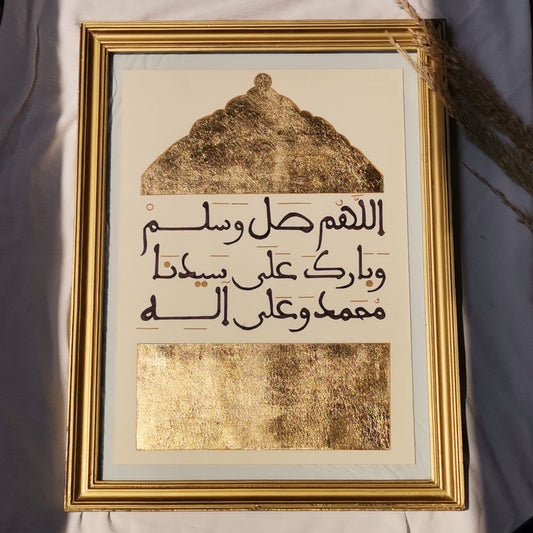 اللَّهُمَّ صَلِّ وَسَلِّمْ
وَبَارِكْ عَلَى سَيِّدِنَا
مُحَمَّدٍ وَعَلَى آلِهِ